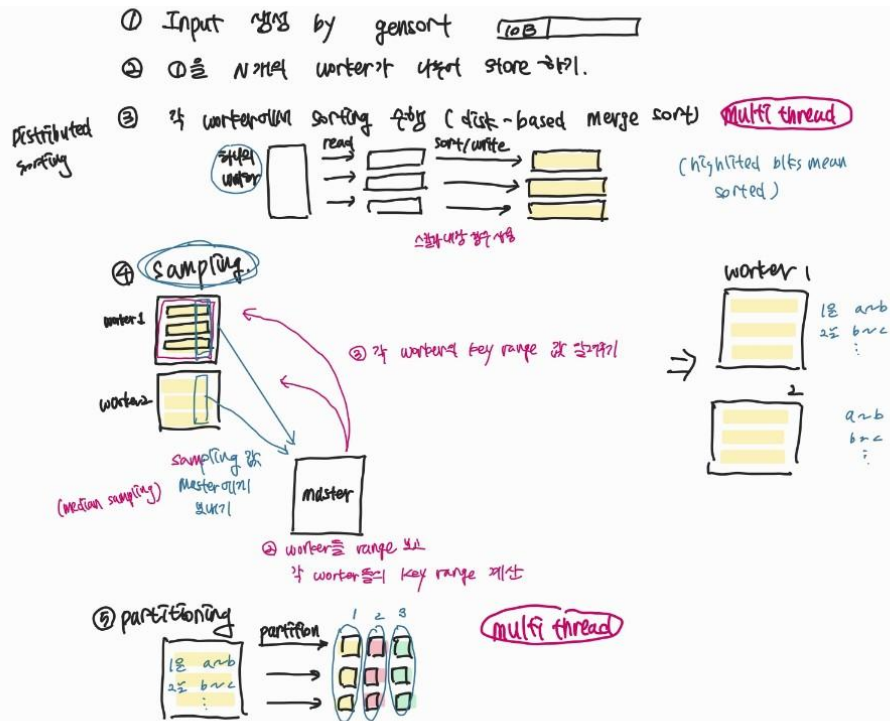 ① Input 생성 by gensort 10B
② ①을 N개의 worker가 나눠서 store 하기.
Distributed sorting
③ 각 worker에서 sorting 수행 (disk-based merge sort) multi thread
하나의 worker
read
sort/write
(highlited blks mean
sorted)
스칼라 내장 함수 사용
④ sampling.
worker1
worker2
③ 각 worker의 key range 값 알려주기
sampling 값
master에게
보내기
(median sampling)
master
② worker들 range 보고
각 worker들의 key range 계산
⇒
worker 1
1은 a~b
2는 b~c
⋮
2
a~b
b~c
⋮
⑤ partitioning
partition
1 2 3
multi thread
1은 a~b
2는 b~c
⋮